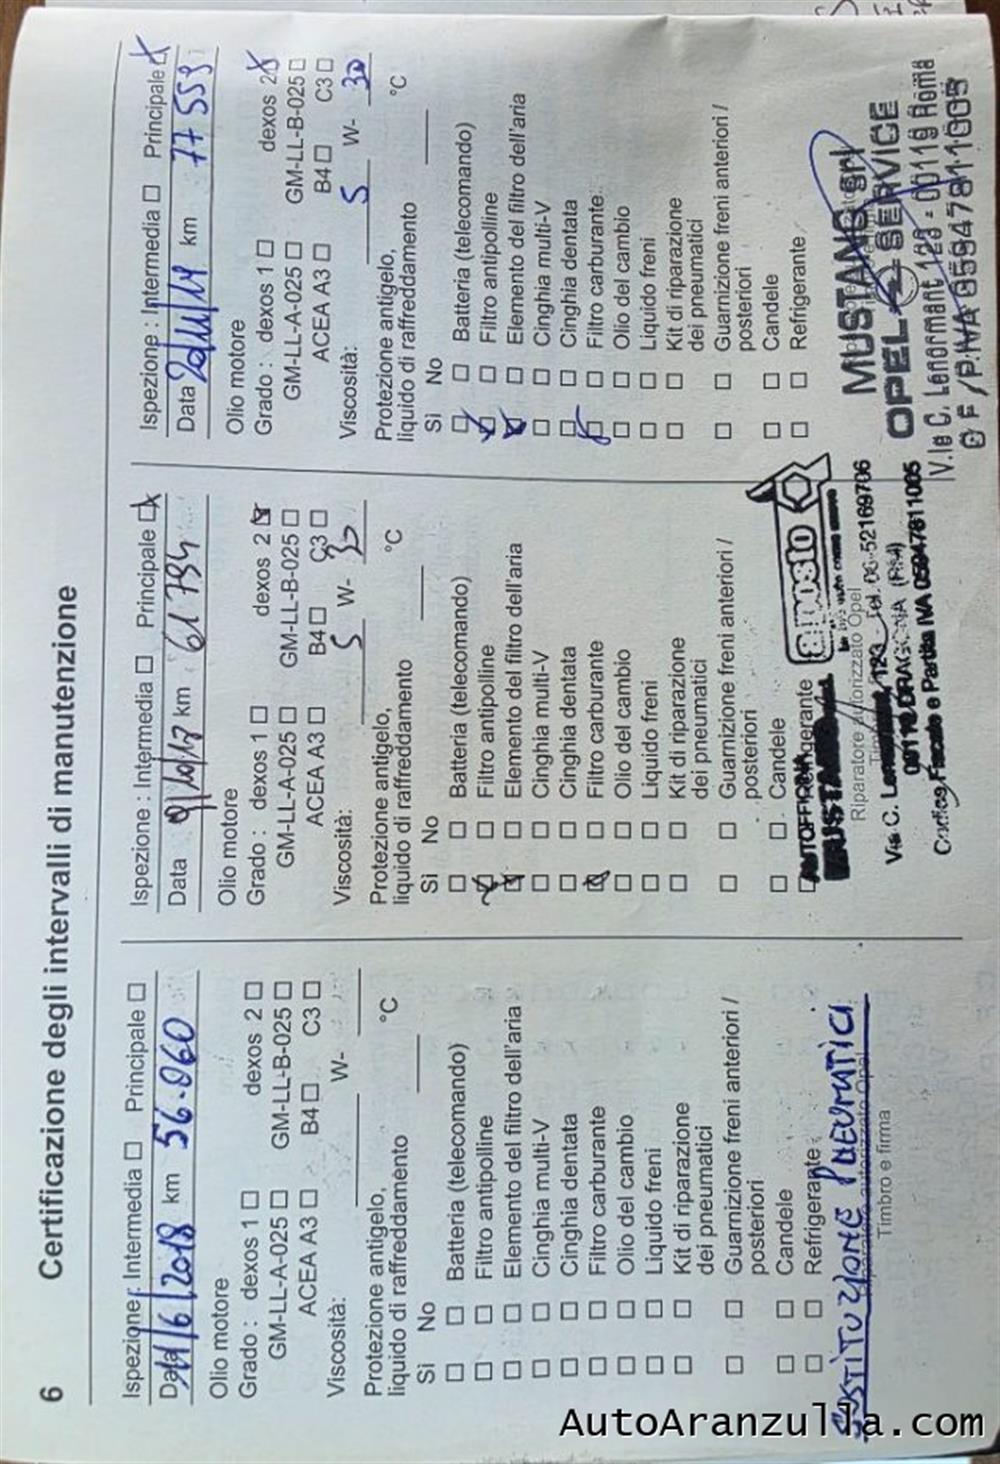 6 Certificazione degli intervalli di manutenzione
Ispezione: Intermedia □ Principale □
Data 11/6/2018 km 56.060
Olio motore
Grado: dexos 1 □ dexos 2 □
GM-LL-A-025 □ GM-LL-B-025 □
ACEA A3 □ B4 □ C3 □
Viscosità: W-
Protezione antigelo,
liquido di raffreddamento °C
Sì No
□ □ Batteria (telecomando)
□ □ Filtro antipolline
□ □ Elemento del filtro dell'aria
□ □ Cinghia multi-V
□ □ Cinghia dentata
□ □ Filtro carburante
□ □ Olio del cambio
□ □ Liquido freni
□ □ Kit di riparazione
dei pneumatici
□ □ Guarnizione freni anteriori /
posteriori
□ □ Candele
□ □ Refrigerante
SOSTITUZIONE PNEUMATICI
Riparatore autorizzato Opel
Timbro e firma
Ispezione : Intermedia □ Principale ☒
Data km 61734
Olio motore
Grado : dexos 1 □ dexos 2 ☒
GM-LL-A-025 □ GM-LL-B-025 □
ACEA A3 □ B4 □ C3 □
Viscosità: 5 W- 30
Protezione antigelo,
liquido di raffreddamento °C
Sì No
□ □ Batteria (telecomando)
☒ □ Filtro antipolline
☒ □ Elemento del filtro dell'aria
□ □ Cinghia multi-V
□ □ Cinghia dentata
☒ □ Filtro carburante
□ □ Olio del cambio
□ □ Liquido freni
□ □ Kit di riparazione
dei pneumatici
□ □ Guarnizione freni anteriori /
posteriori
□ □ Candele
AUTOFFICINA aposto
Riparatore autorizzato Opel
Via C. 123 Tel. 06-52169706
DRAGONA (RM)
Codice Fiscale e Partita IVA 05947811005
Ispezione : Intermedia □ Principale ☒
Data km 77559
Olio motore
Grado : dexos 1 □ dexos 2 ☒
GM-LL-A-025 □ GM-LL-B-025 □
ACEA A3 □ B4 □ C3 □
Viscosità: 5 W- 30
Protezione antigelo,
liquido di raffreddamento °C
Sì No
□ □ Batteria (telecomando)
☒ □ Filtro antipolline
☒ □ Elemento del filtro dell'aria
□ □ Cinghia multi-V
□ □ Cinghia dentata
☒ □ Filtro carburante
□ □ Olio del cambio
□ □ Liquido freni
□ □ Kit di riparazione
dei pneumatici
□ □ Guarnizione freni anteriori /
posteriori
□ □ Candele
□ □ Refrigerante
MUSTANG srl
OPEL SERVICE
V.le C. Lenormant 123 - 00119 Roma
C F / P.IVA 05947811005
AutoAranzulla.com